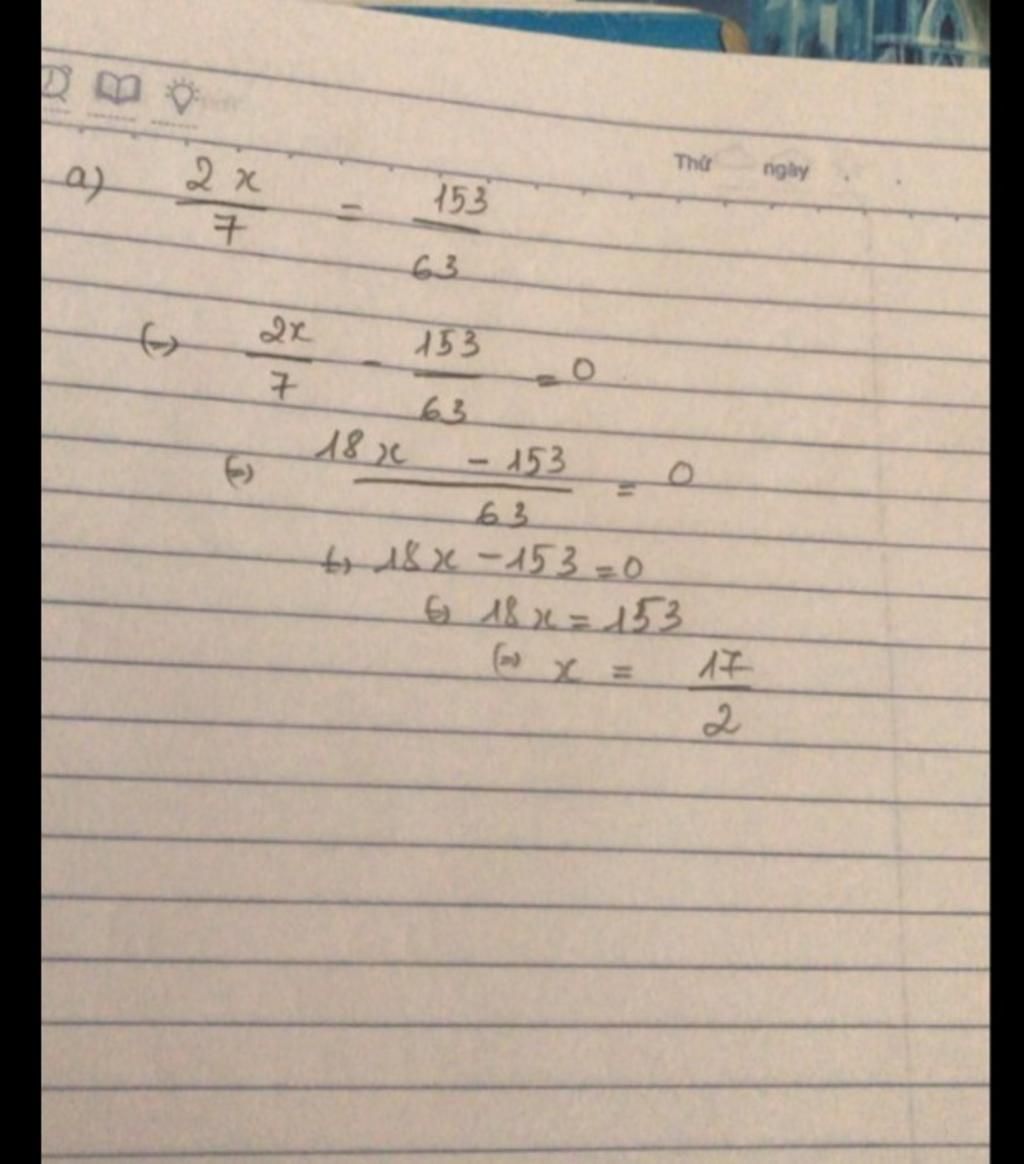 Thứ ngày
a) 2x/7 = 153/63
(=) 2x/7 - 153/63 = 0
(=) 18x - 153/63 = 0
(=) 18x - 153 = 0
(=) 18x = 153
(=) x = 17/2